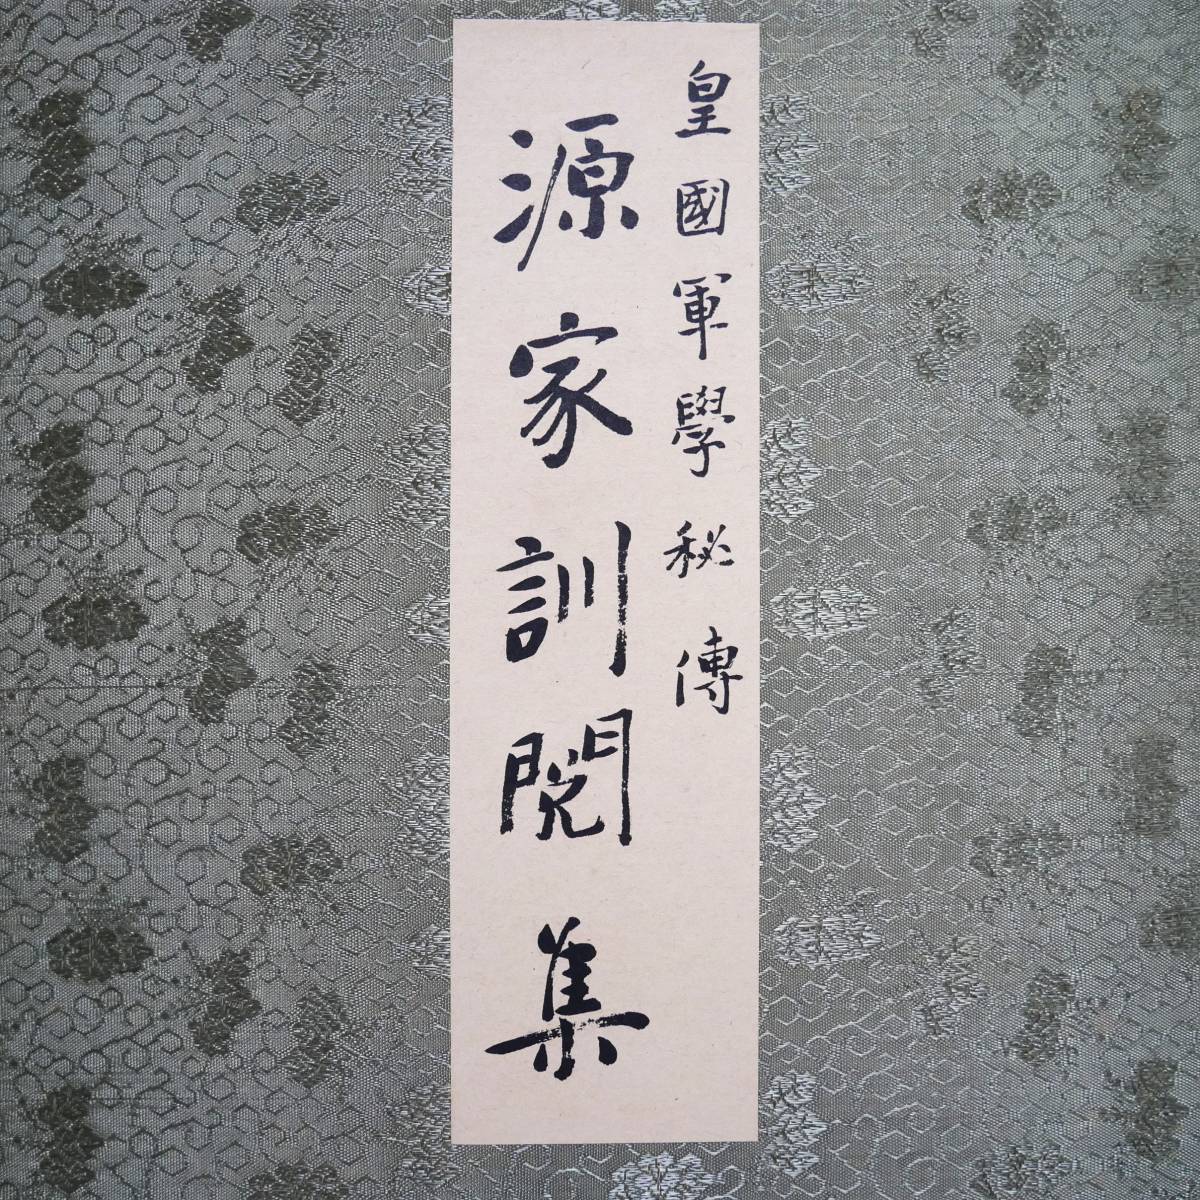 皇國軍學秘傳
源家訓閲集